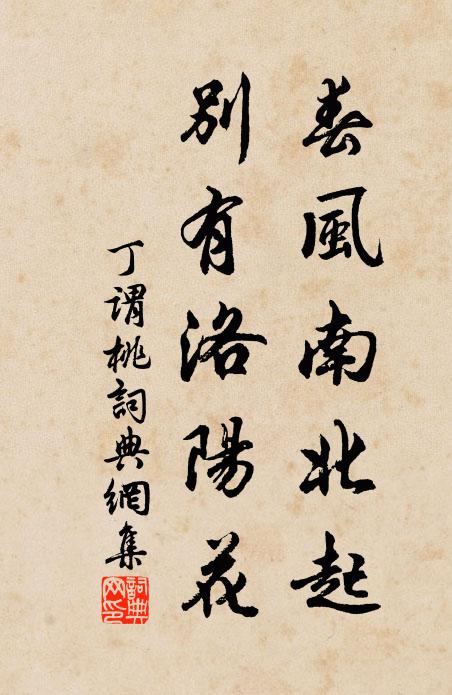 春風南北起
別有洛陽花
丁謂桃詞典網集
詞典